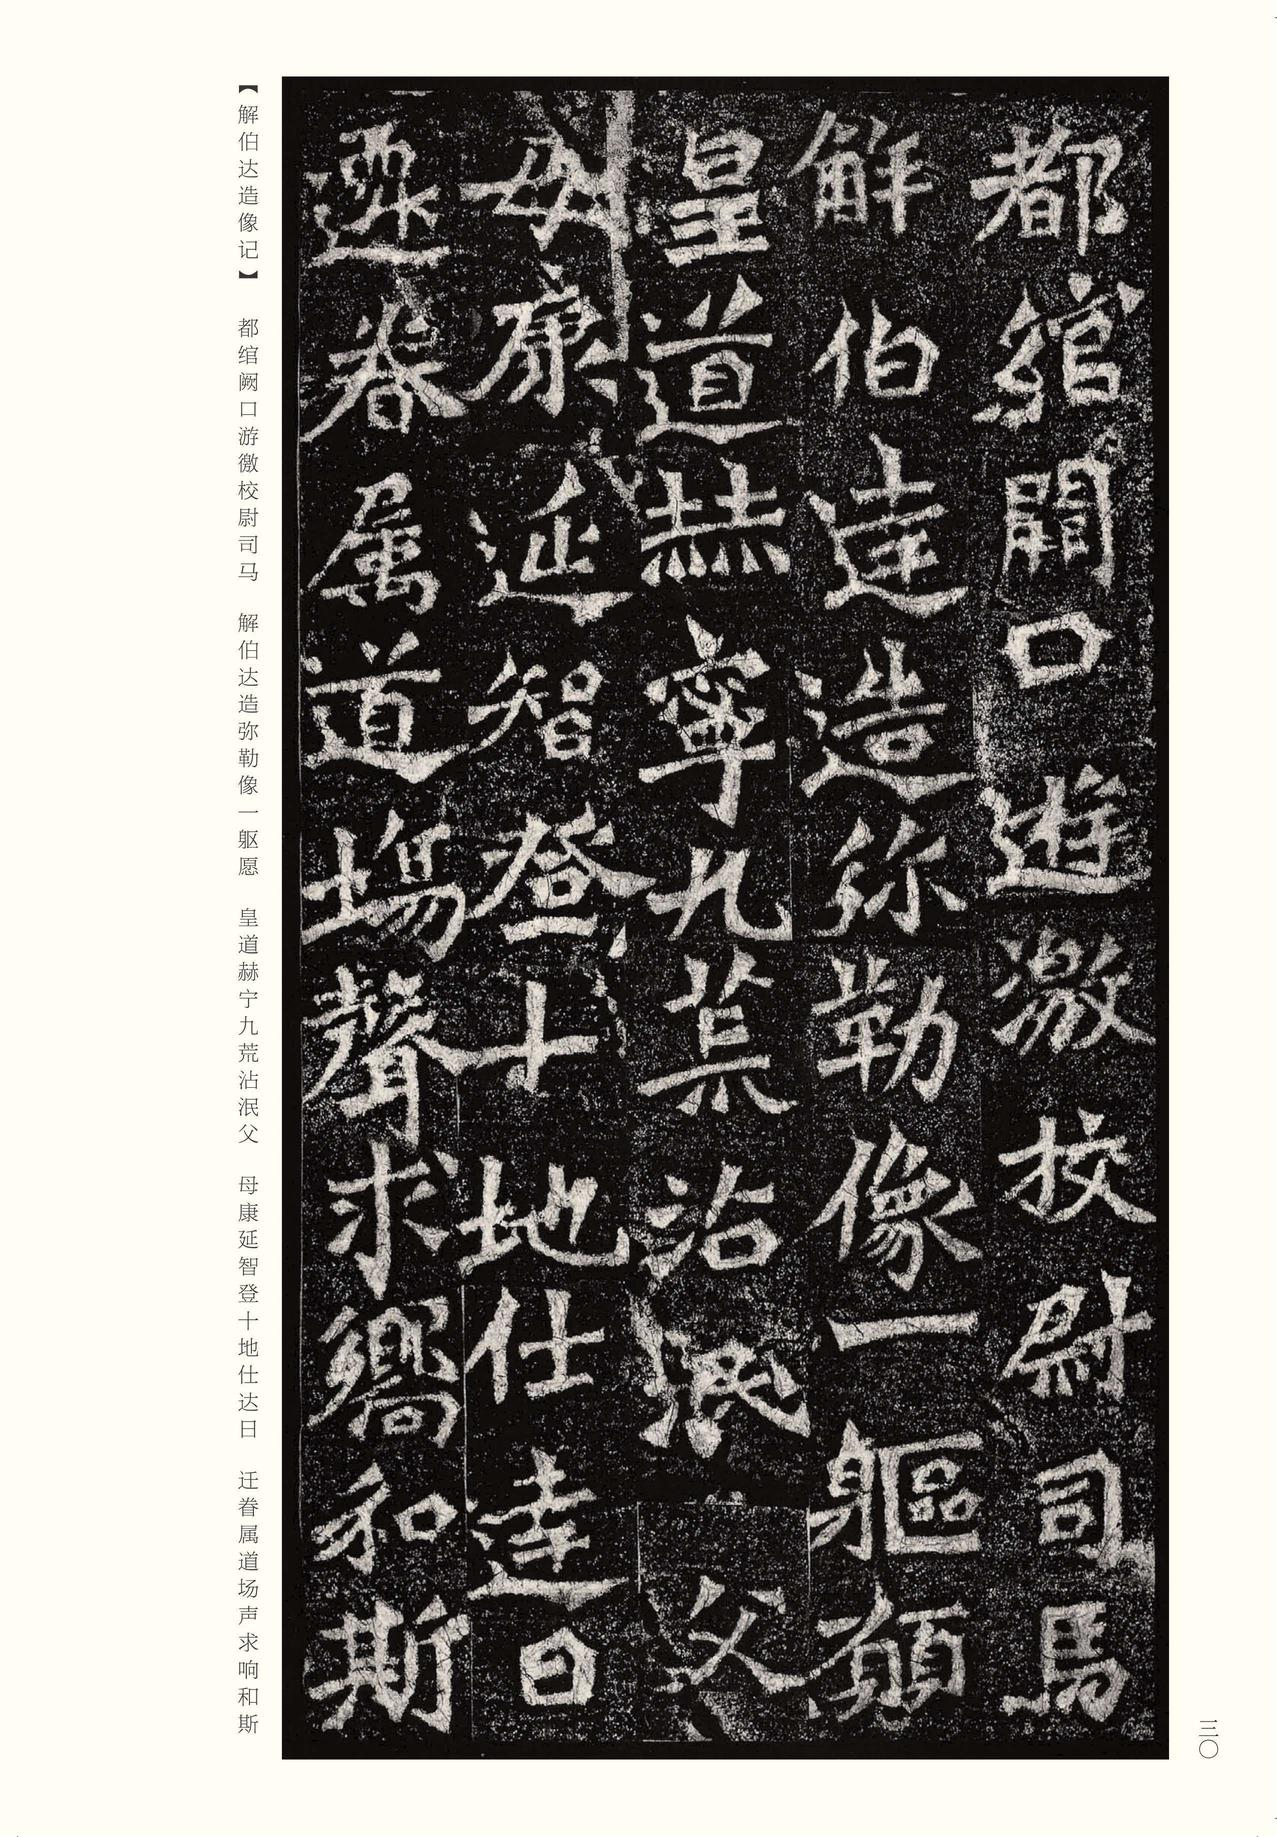 都綰闕口遊激校尉司馬
解伯達造弥勒像一軀願
皇道赫寧九荒沾泯父
母康延智登十地仕達日
遷眷属道場聲求嚮和斯
【解伯达造像记】 都绾阙口游徼校尉司马 解伯达造弥勒像一躯愿 皇道赫宁九荒沾泯父 母康延智登十地仕达日 迁眷属道场声求响和斯
三〇